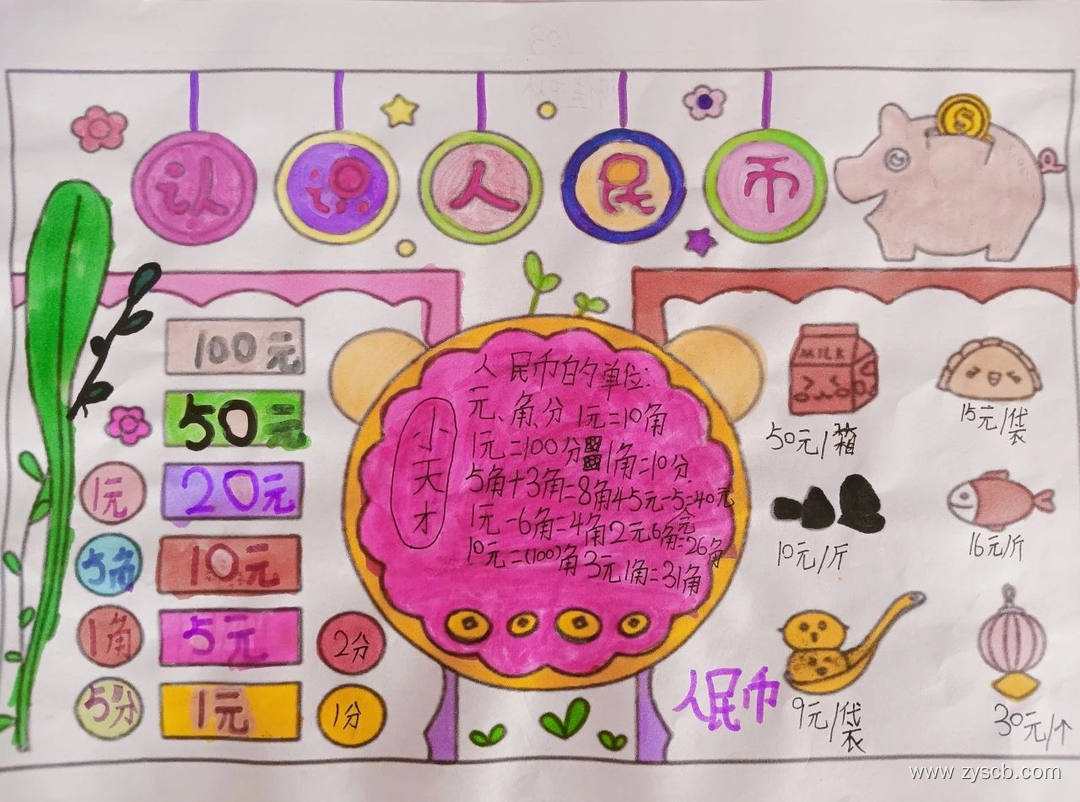 认识人民币
100元
50元
1元
20元
5角
10元
1角
5元
2分
5分
1元
1分
小天才
人民币的单位:
元、角、分 1元=10角
1元=100分 1角=10分
5角+3角=8角 45元-5元=40元
1元-6角=4角 2元6角=26角
10元=(100)角 3元1角=31角
MILK
50元/箱
15元/袋
10元/斤
16元/斤
人民币
9元/袋
30元/个
www.zyscb.com